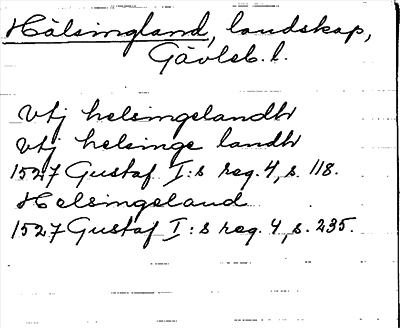 Hälsingland, landskap,
Gävleb. l.
vtj helsingelandh
vtj helsinge landh
1527 Gustaf I:s reg. 4, s. 118.
Helsingeland
1527 Gustaf I:s reg. 4, s. 235.